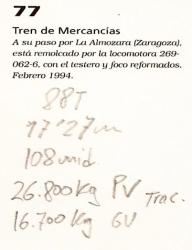 77
Tren de Mercancías
A su paso por La Almozara (Zaragoza),
está remolcado por la locomotora 269-
062-6, con el testero y foco reformados.
Febrero 1994.
88T
17'27m
108 mid.
26.800kg PV Trac.
16.700 kg GV